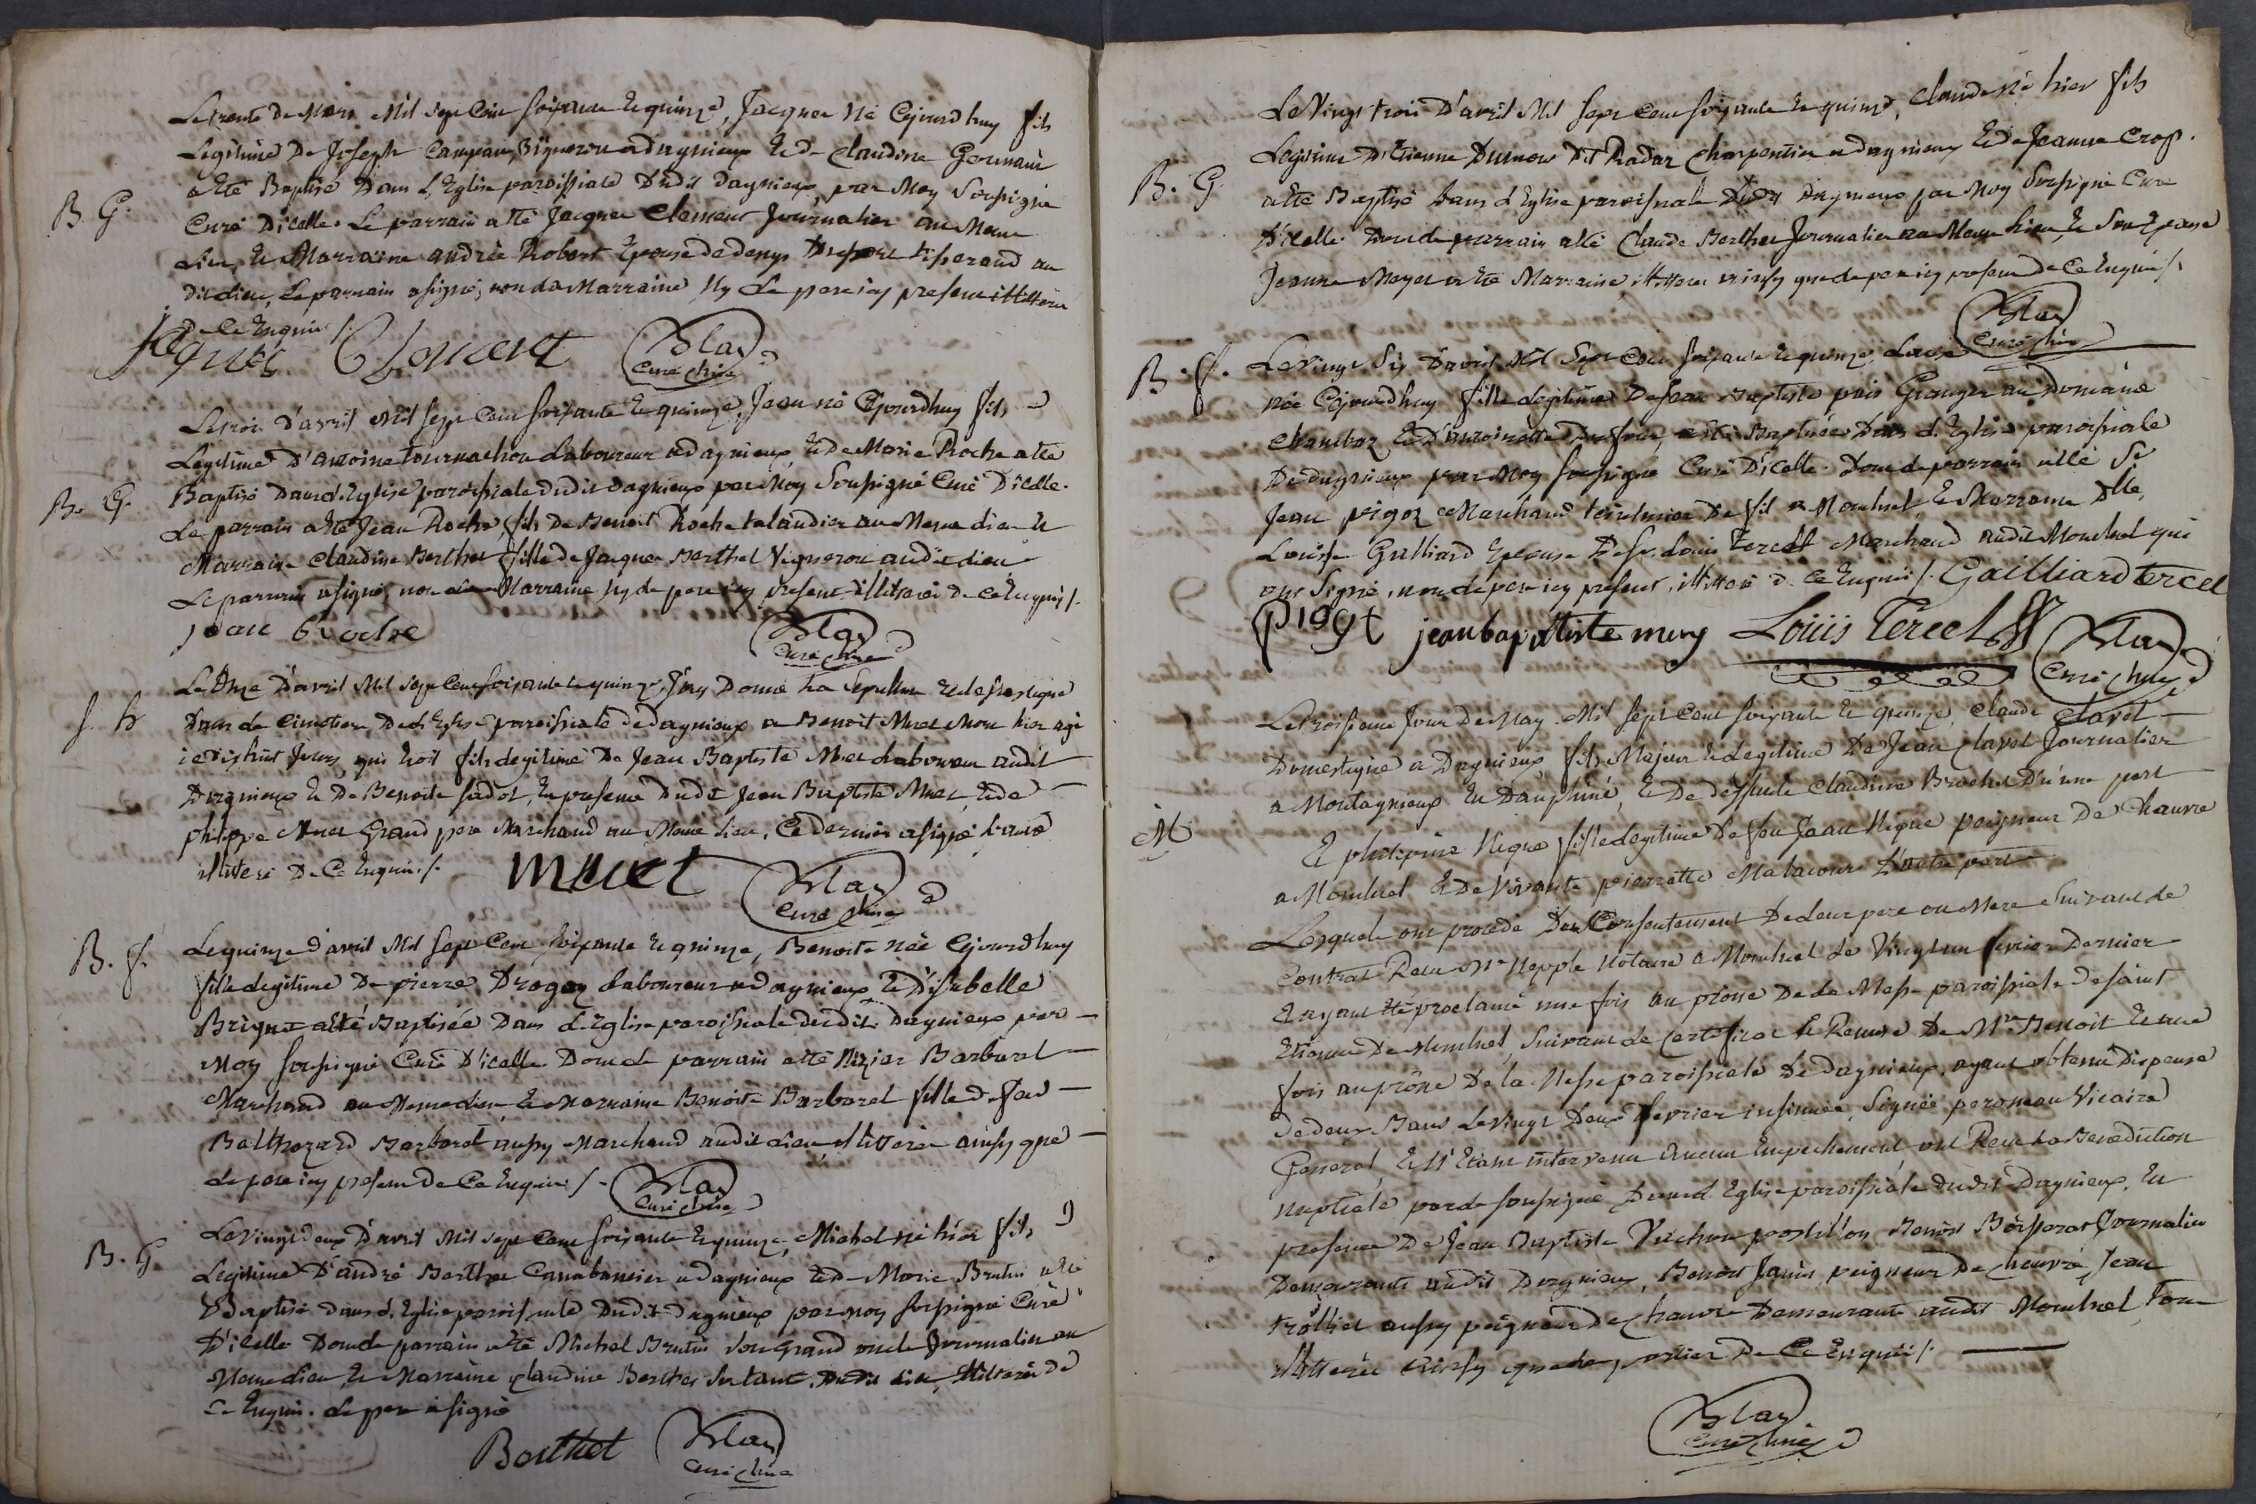 Le trente de Mars Mil sept Cent soixante et quinze, Jacques né Cejourdhuy fils
Legitime De Joseph Campan, Vigneron a dagnieux et de Claudine Germain
B. G.
a été Baptisé Dans L'Eglise paroissiale Dudit dagnieux, par Moy Soussigné
Curé D'icelle. Le parrain a été Jacques Clement Journalier au Meme
Lieu, et Marraine andrée Robert Epouse de denys tisserand au
dit Lieu, Le parrain a signé, non La Marraine Ny Le pere icy present illitérés
de Ce Enquis /.
Jaques Clement
Curé
Le trois d'avril Mil sept Cent soixante et quinze, Jean né Cejourdhuy fils
Legitime D'antoine tournachon Laboureur a dagnieux et de Marie Roche a été
B. G.
Baptisé Dans L'Eglise paroissiale dudit dagnieux par Moy Soussigné Curé D'icelle.
Le parrain a été Jean Roche, fils De Benoit Roche talandier au Meme Lieu et
Marraine Claudine Berthet fille de Jacques Berthet Vigneron audit Lieu
Le parrain a signé, non La Marraine Ny Le pere icy present illiterés de Ce Enquis /.
Jean Roche
Curé
Le Onze D'avril Mil sept Cent soixante et quinze, J'ay Donné La Sepulture Eclesiastique
Dans Le Cimetiere De L'Eglise paroissiale de dagnieux a Benoit Muet Mort hier agé
de dixhuit Jours, qui Etoit fils Legitime De Jean Baptiste Muet Laboureur audit
Dagnieux et De Benoite fadot, En presence Dudit Jean Baptiste Muet, et de
philippe Muet Grand pere Marchand au Meme Lieu, Ce dernier a signé L'autre
illiteré De Ce Enquis /.
muet
Curé
B. f.
Le quinze d'avril Mil sept Cent soixante et quinze, Benoite née Cejourdhuy
fille Legitime De pierre Drogoz Laboureur a dagnieux et D'isabelle
Brigno a été Baptisée Dans L'Eglise paroissiale dudit Dagnieux par
Moy soussigné Curé D'icelle Dont Le parrain a été Nizier Barbaret
Marchand au Meme Lieu, et Marraine Benoite Barbaret fille De feu
Balthazard Barbaret aussy Marchand audit Lieu illitterée ainsy que
Le pere icy present De Ce Enquis /.
Curé
B. G.
Le Vingt deux D'avril Mil sept Cent soixante et quinze, Michel né hier fils
Legitime D'andré Berthet Canabassier a dagnieux et de Marie Brutin a été
Baptisé dans L'Eglise paroissiale Dudit Dagnieux par Moy soussigné Curé
D'icelle Dont Le parrain a été Michel Brutin son grand oncle Journalier au
Meme Lieu, Et Marraine Claudine Berthet sa tante, Dudit Lieu, illiterés de
Ce Enquis. Le pere a signé
Berthet
Curé
Le Vingt trois D'avril Mil sept Cent soixante et quinze, Claude né hier fils
Legitime D'Etienne Dumas Dit Radar Charpentier a dagnieux et de Jeanne Crop.
B. G.
a été Baptisé Dans L'Eglise paroissiale Dudit Dagnieux par Moy Soussigné Curé
D'icelle. Dont Le parrain a été Claude Berthet Journalier au Meme Lieu, et Son Epouse
Jeanne Mayet a été Marraine illitterés ainsy que Le pere icy present De Ce Enquis /.
Curé
B. f.
Le Vingt Six D'avril Mil Sept Cent soixante et quinze, Louise
née Cejourdhuy fille Legitime De Jean Baptiste Granger au Domaine
Chambaz et D'antoinette a été Baptisée Dans L'Eglise paroissiale
De dagnieux par Moy soussigné Curé D'icelle. Dont Le parrain a été Sr
Jean pigot Marchand teinturier De fil a Montluel, et Marraine Dlle
Louise Galliard Epouse De Sr. Louis Tercet Marchand audit Montluel qui
ont Signé, non Le pere icy present, illitteré de Ce Enquis /. Gailliard tercet
pigot jean baptiste mury Loüis Tercet
Curé
Le troisieme Jour De May Mil sept Cent soixante et quinze, Claude Clavel
Domestique a Dagnieux, fils Majeur et Legitime De Jean Clavel Journalier
a Montagnieux En Dauphiné, et De deffunte Claudine Brochet D'une part
M
Et philippine Nique fille Legitime De feu Jean Nique peigneur De Chanvre
a Montluel et De Vivante pierrette Malacour D'autre part
Lesquels ont procedé Du Consentement De Leur pere ou Mere Suivant le
Contrat Recu Mre Nepple Notaire a Montluel Le Vingt un fevrier Dernier
Et ayant été proclamé une fois au prone De La Messe paroissiale de Saint
Etienne De Montluel, Suivant Le Certificat et Remise De Mre Benoit Et une
fois au prône De La Messe paroissiale De dagnieux, ayant obtenu Dispense
De deux Bans Le Vingt Deux fevrier insinuée, Signée Vicaire
General Et N'Etant intervenu aucun Empechement ont Recu La Benediction
nuptiale par Le soussigné Dans L'Eglise paroissiale dudit Dagnieux, En
presence De Jean Baptiste Vuichon postillon Benoit Boisserat Journalier
Demeurants audit Dagnieux, Benoit Janin peigneur De Chanvre, Jean
trolliet aussy peigneur De Chanvre Demeurants audit Montluel, Tous
illitterés ainsy que Les parties De Ce Enquis /.
Curé